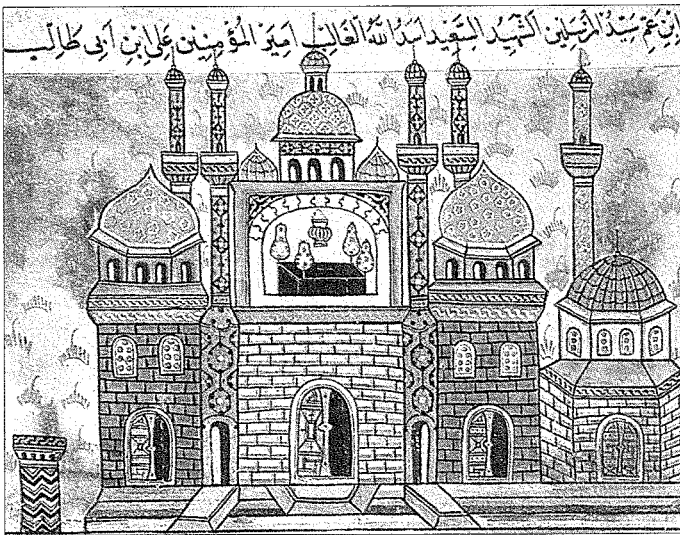 ابْنِ عَمِّ سَيِّدُ الْمُرْسَلِين الشَّهِيدُ السَّعِيد اَسَدُ اللّٰهُ الْغَالِبْ اَمِيرَ الْمُؤْمِنِين عَلِى ابْنِ اَبِى طَالِبْ